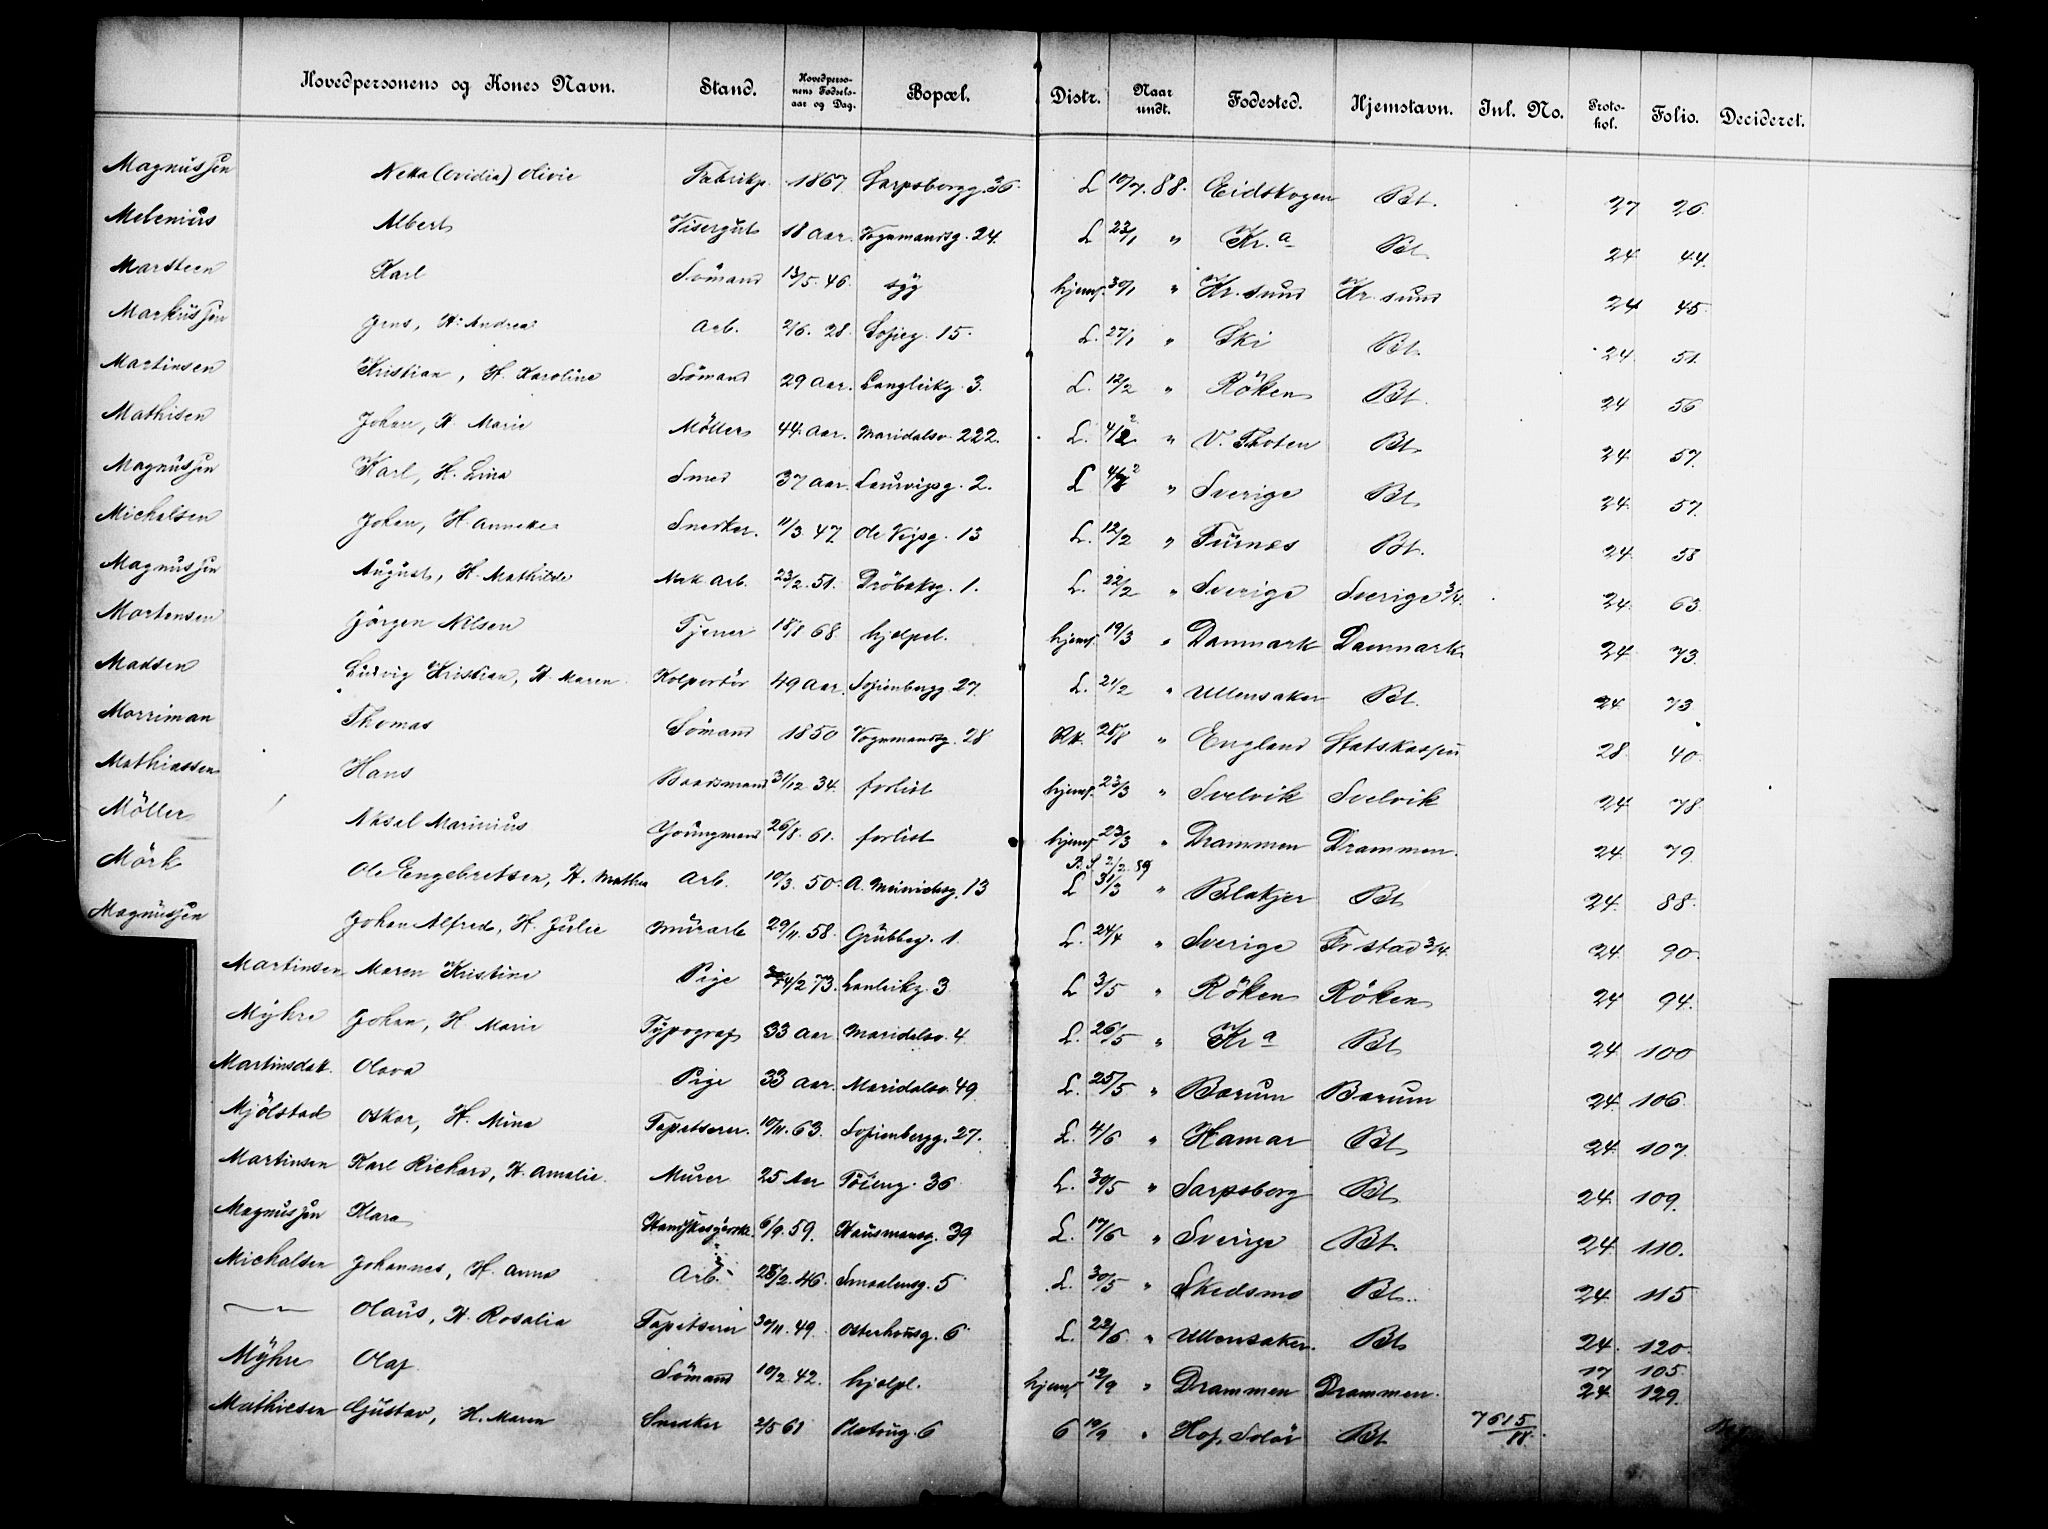 Hovedpersonens og Kones Navn. Stand. Hovedpersonens Fødselsaar og Dag. Bopæl. Distr. Naar undt. Fødested. Hjemstavn. Jnl. No. Protokol. Folio. Decideret.
Magnussen Neka (Ovidia) Olivie Fabrikp. 1867. Sarpsborgg. 36. L 10/7. 88. Eidskogen Bt. 27 26
Melenius Albert Visergut 18 Aar. Vognmandsg. 24. L 23/1 " Kr.a Bt. 24 44.
Marsteen Karl Sömand 13/5. 46. syg hjemf. 30/1 " Kr. sund Kr. sund 24 45
Markussen Jens, H. Andrea Arb. 2/6. 28. Sofieg. 15. L. 27/1 " Ski Bt. 24 51.
Martinsen Kristian, H. Karoline Sömand 29 Aar. Langleikg. 3. L. 12/2 " Röken Bt. 24 56
Mathisen Johan, H. Marie Möller 44 Aar. Maridalsv. 222. L. 4/2 " V. Thoten Bt. 24 57.
Magnussen Karl, H. Lina Smed 37 Aar. Laurvigsg. 2. L 4/2 " Sverige Bt. 24 57.
Michalsen Johan, H. Anneke Snedker. 11/3. 47. Ole Vigsg. 13 L. 12/2 " Furnes Bt. 24 58
Magnussen August, H. Mathilde Mek. Arb. 23/2. 51. Dröbaksg. 1. L. 22/2 " Sverige Sverige 3/4. 24 63.
Mortensen Jörgen Nilsen Tjener 18/8 68 hjelpel. hjemf. 19/3 " Danmark Danmark 24 73.
Madsen Ludvig Kristian, H. Maren Kolportör 49 Aar. Sofienbergg. 27. L. 21/2 " Ullensaker Bt. 24 73
Morriman Thomas Sömand 1850 Vognmandsg. 28 Rk. 28/8 " England Statskassen 28 40.
Mathiassen Hans Baadsmand 31/12 34. forlist hjemf. 23/3 " Svelvik Svelvik 24 78.
Möller Aksel Marinius Youngmand 26/8. 61. forlist hjemf. 23/3 " Drammen Drammen. 24. 79
Mörk Ole Engebretsen, H. Mathea Arb. 10/3. 50. A. Meinichsg. 13 L 31/3 " Blakjer Bt 24. 88.
Magnussen Johan Alfred, H. Julie Murarb 29/11. 58. Grubbeg. 1. L. 24/4 " Sverige Fr stad 3/4. 24 90.
Martinsen Maren Kristine Pige 4/2 73. Lanleikg. 3 L 3/5 " Röken Röken 24 94.
Myhre Johan, H. Marie Typograf 33 Aar. Maridalsv. 4. L. 26/5 " Kr a Bt 24. 100
Martinsdat. Olava Pige 33 Aar. Maridalsv. 49 L. 25/5 " Barum Barum 24. 106.
Mjölstad Oskar, H. Mina Tapetserer. 10/11. 63. Sofienbergg. 27. L. 4/6 " Hamar Bt 24 107.
Martinsen Karl Richard, H. Amalie. Murer 25 Aar Töieng. 36 L. 30/5 " Sarpsborg Bt 24. 109.
Magnussen Klara 6/9. 59. Hausmansg. 39 L. 17/6 " Sverige Bt. 24. 110.
Michalsen Johannes, H. Anna Arb. 28/2. 46. Smaalensg. 5 L. 30/5 " Skedsmo Bt. 24. 115
— " — Olaus, H. Rosalia Tapetserer 30/11. 49. Osterhausg. 6 L. 22/6 " Ullensaker. Bt 24. 120.
Myhre Olaf. Sömand 10/2. 42. hjelpl. hjemf 12/9 " Drammen Drammen. 17 105. 24 129.
Mathiesen Gustav, H. Maren Snedker 2/5 61 6 6 19/9 " Hof, Solör Bt 7615/88.